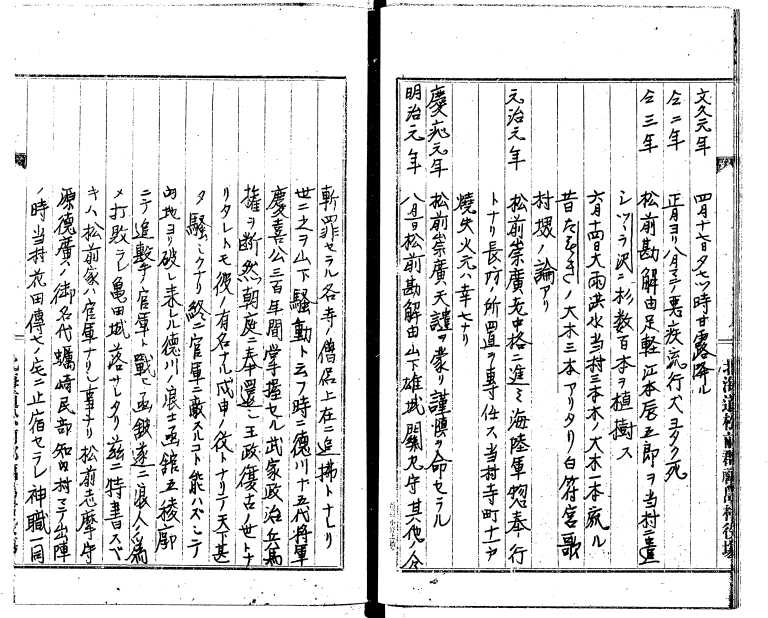 文久元年 四月十七日夕七ツ時甘露降ル
仝二年 正月ヨリ八月マデ悪疾流行人ヨタク死
仝三年 松前勘解由足軽江本辰五郎ヲ当村ニ遣
シツラ沢ニ杉数百本ヲ植樹ス
六月十四日大雨洪水当村三本木ノ大木一本流ル
昔ノ大木三本アリタリ白符宮歌
村堺ノ論アリ
元治元年 松前崇廣老中格ニ進ミ海陸軍惣奉行
トナリ長防ノ所置ヲ専仕ス当村寺町十一戸
焼失火元ハ幸七ナリ
慶応元年 松前崇廣天譴ヲ蒙リ謹慎ヲ命セラル
明治元年 八月一日松前勘解由山下雄城関左守其他ノ
斬罪セラル各寺ノ僧侶上在ニ追拂トナレリ
世ニ之ヲ山下騒動ト云フ時ニ徳川十五代将軍
慶喜公三百年間掌握セル武家政治兵馬
権ヲ断然朝庭ニ奉還シ王政復古ノ世トナ
リタレトモ彼ノ有名ナル戊申ノ役トナリテ天下甚
タ騒シクナリ終ニ官軍ニ敵スルコト能ハズシテ
内地ヨリ破レ来レル徳川ノ浪士函館五稜廓
ニテ追撃ノ官軍ト戦ヒ函館遂ニ浪人ノ為
メ打敗ラレ亀田城落サレタリ茲ニ特書スベ
キハ松前家ハ官軍ナリシ事ナリ松前志摩守
源徳廣ノ御名代蠣崎民部知内村マテ出陣
ノ時当村花田傳七ノ宅ニ止宿セラレ神職一同